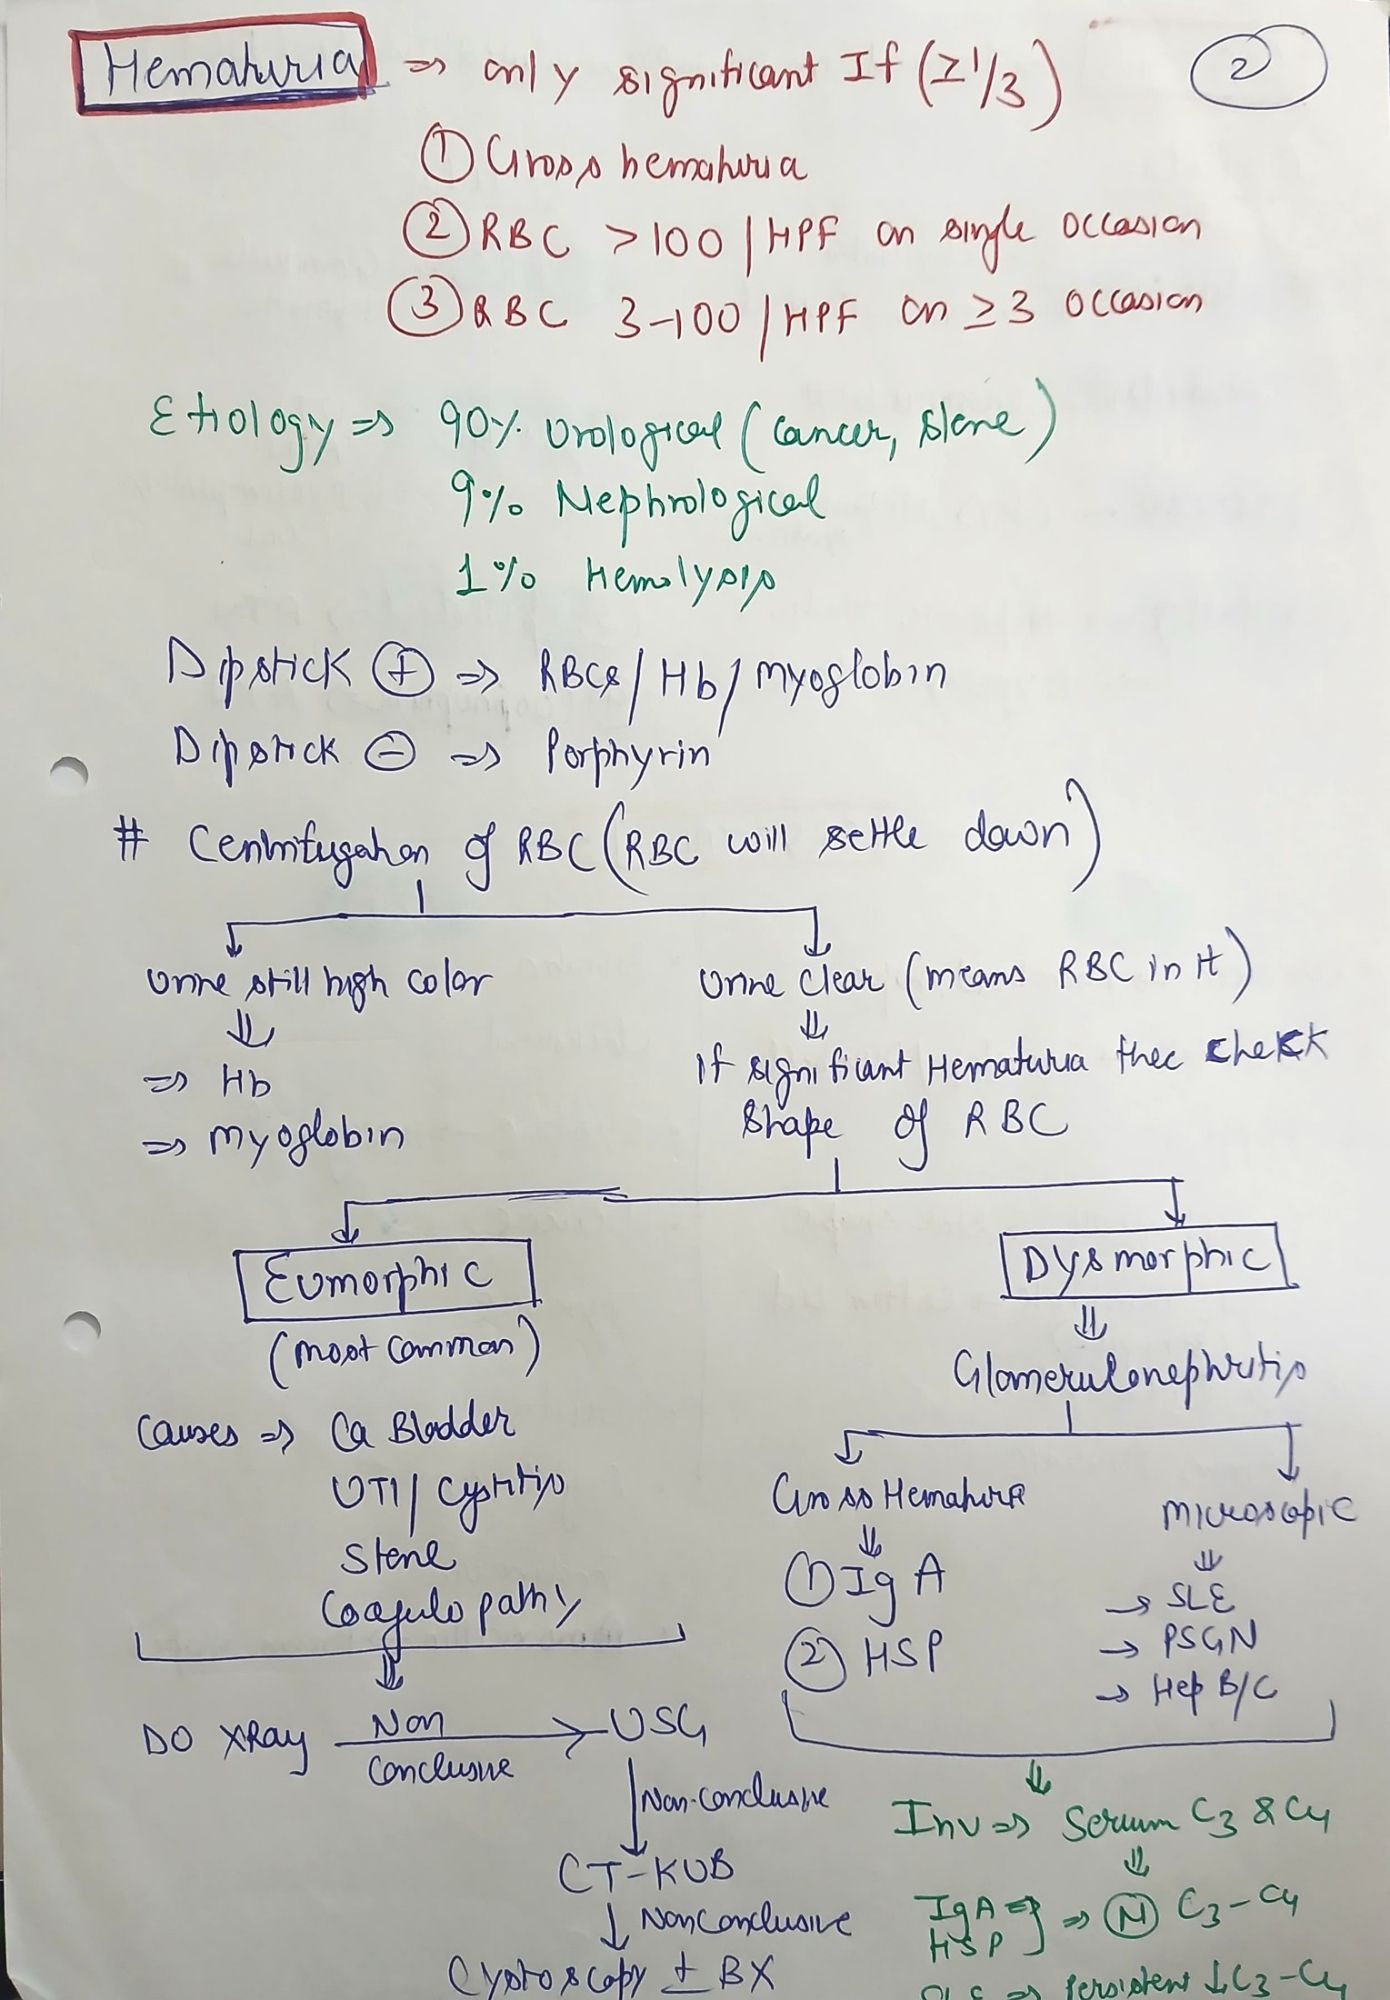 Hematuria ⇒ only significant If (≥1/3)
2
① Gross hematuria
② RBC >100 / HPF on single occasion
③ RBC 3-100 / HPF on ≥3 occasion
Etiology ⇒ 90% Urological (cancer, stone)
9% Nephrological
1% Hemolysis
Dipstick ⊕ ⇒ RBCs / Hb / Myoglobin
Dipstick ⊖ ⇒ Porphyrin
# Centrifugation of RBC (RBC will settle down)
Urine still high color
⇒ Hb
⇒ Myoglobin
Urine clear (means RBC in it)
If significant Hematuria then check
shape of RBC
Eumorphic
(most common)
Causes ⇒ Ca Bladder
UTI / Cystitis
Stone
Coagulopathy
DO XRay Non Conclusive → USG
Non-Conclusive
CT-KUB
↓ Non Conclusive
Cystoscopy ± BX
Dysmorphic
Glomerulonephritis
Gross Hematuria
① IgA
② HSP
Microscopic
→ SLE
→ PSGN
→ Hep B/C
Inv ⇒ Serum C3 & C4
IgA ⇒
HSP } ⇒ Ⓝ C3-C4
⇒ Persistent ↓C3-C4